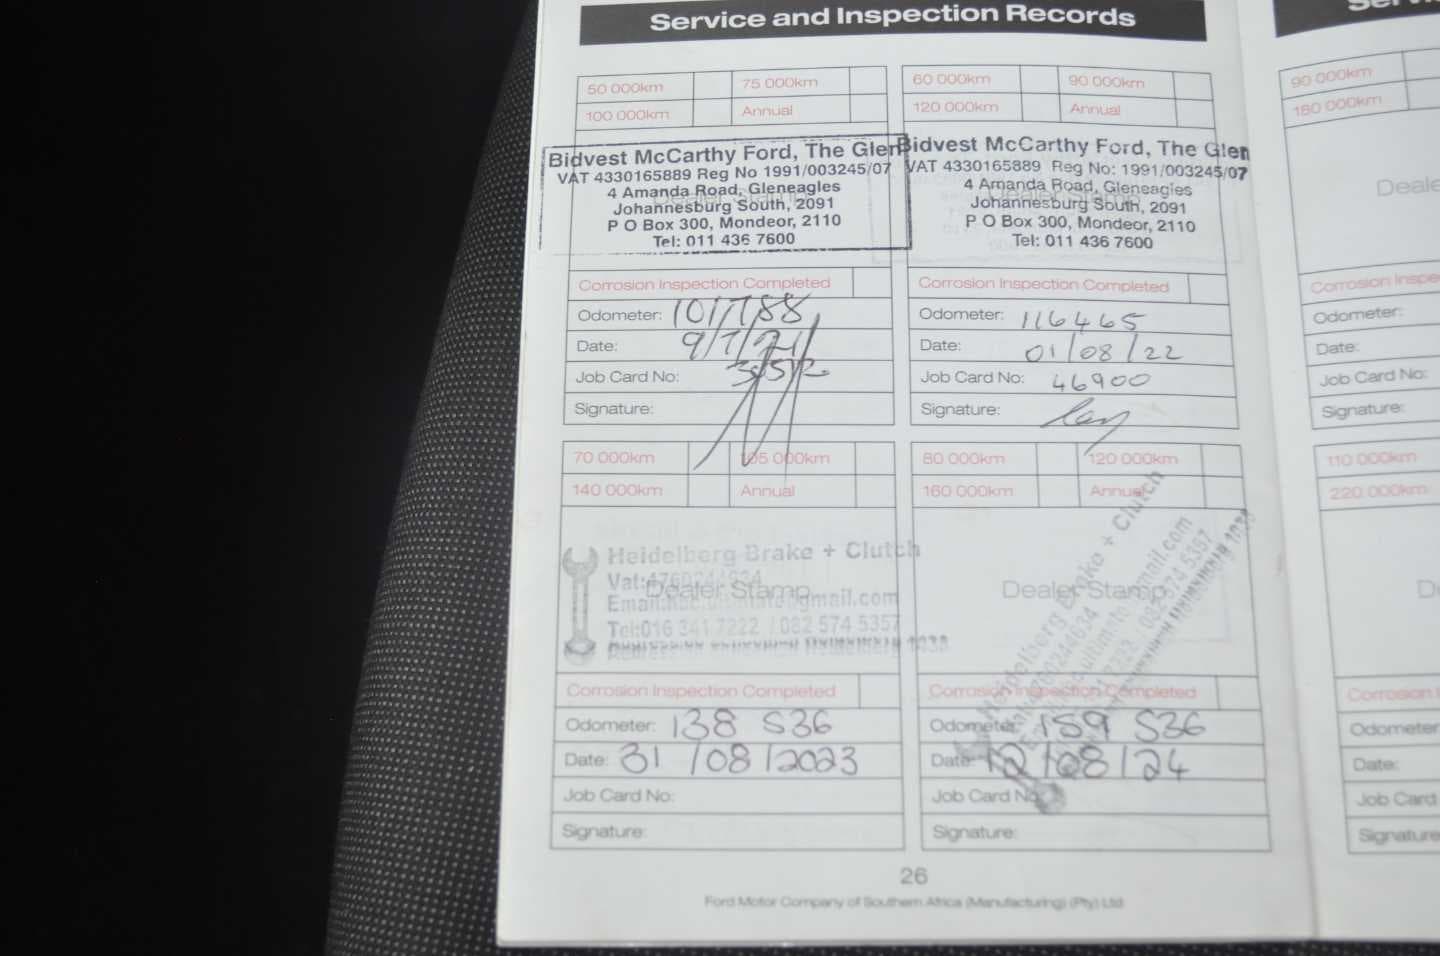 Service and Inspection Records
50 000km 75 000km
100 000km Annual
Bidvest McCarthy Ford, The Glen
VAT 4330165889 Reg No 1991/003245/07
4 Amanda Road, Gleneagles
Dealer Stamp
Johannesburg South, 2091
P O Box 300, Mondeor, 2110
Tel: 011 436 7600
Corrosion Inspection Completed
Odometer: 101788
Date: 9/7/21
Job Card No:
Signature:
60 000km 90 000km
120 000km Annual
Bidvest McCarthy Ford, The Glen
VAT 4330165889 Reg No: 1991/003245/07
4 Amanda Road, Gleneagles
Dealer Stamp
Johannesburg South, 2091
P O Box 300, Mondeor, 2110
Tel: 011 436 7600
Corrosion Inspection Completed
Odometer: 116465
Date: 01/08/22
Job Card No: 46900
Signature:
70 000km 105 000km
140 000km Annual
Heidelberg Brake + Clutch
Vat:4760244634
Dealer Stamp
Email: @gmail.com
Tel:016 341 7222 / 082 574 5357
Heidelberg 1438
Corrosion Inspection Completed
Odometer: 138 536
Date: 31/08/2023
Job Card No:
Signature:
80 000km 120 000km
160 000km Annual
Dealer Stamp
Heidelberg Brake + Clutch
4760244634
@gmail.com
/ 082 574 5357
Corrosion Inspection Completed
Odometer: 159 536
Date: 12/08/24
Job Card No:
Signature:
90 000km
180 000km
Corrosion
Odometer:
Date:
Job Card No:
Signature:
110 000km
220 000km
Corrosion
Odometer
Date:
Job Card
Signature
26
Ford Motor Company of Southern Africa (Manufacturing) (Pty) Ltd